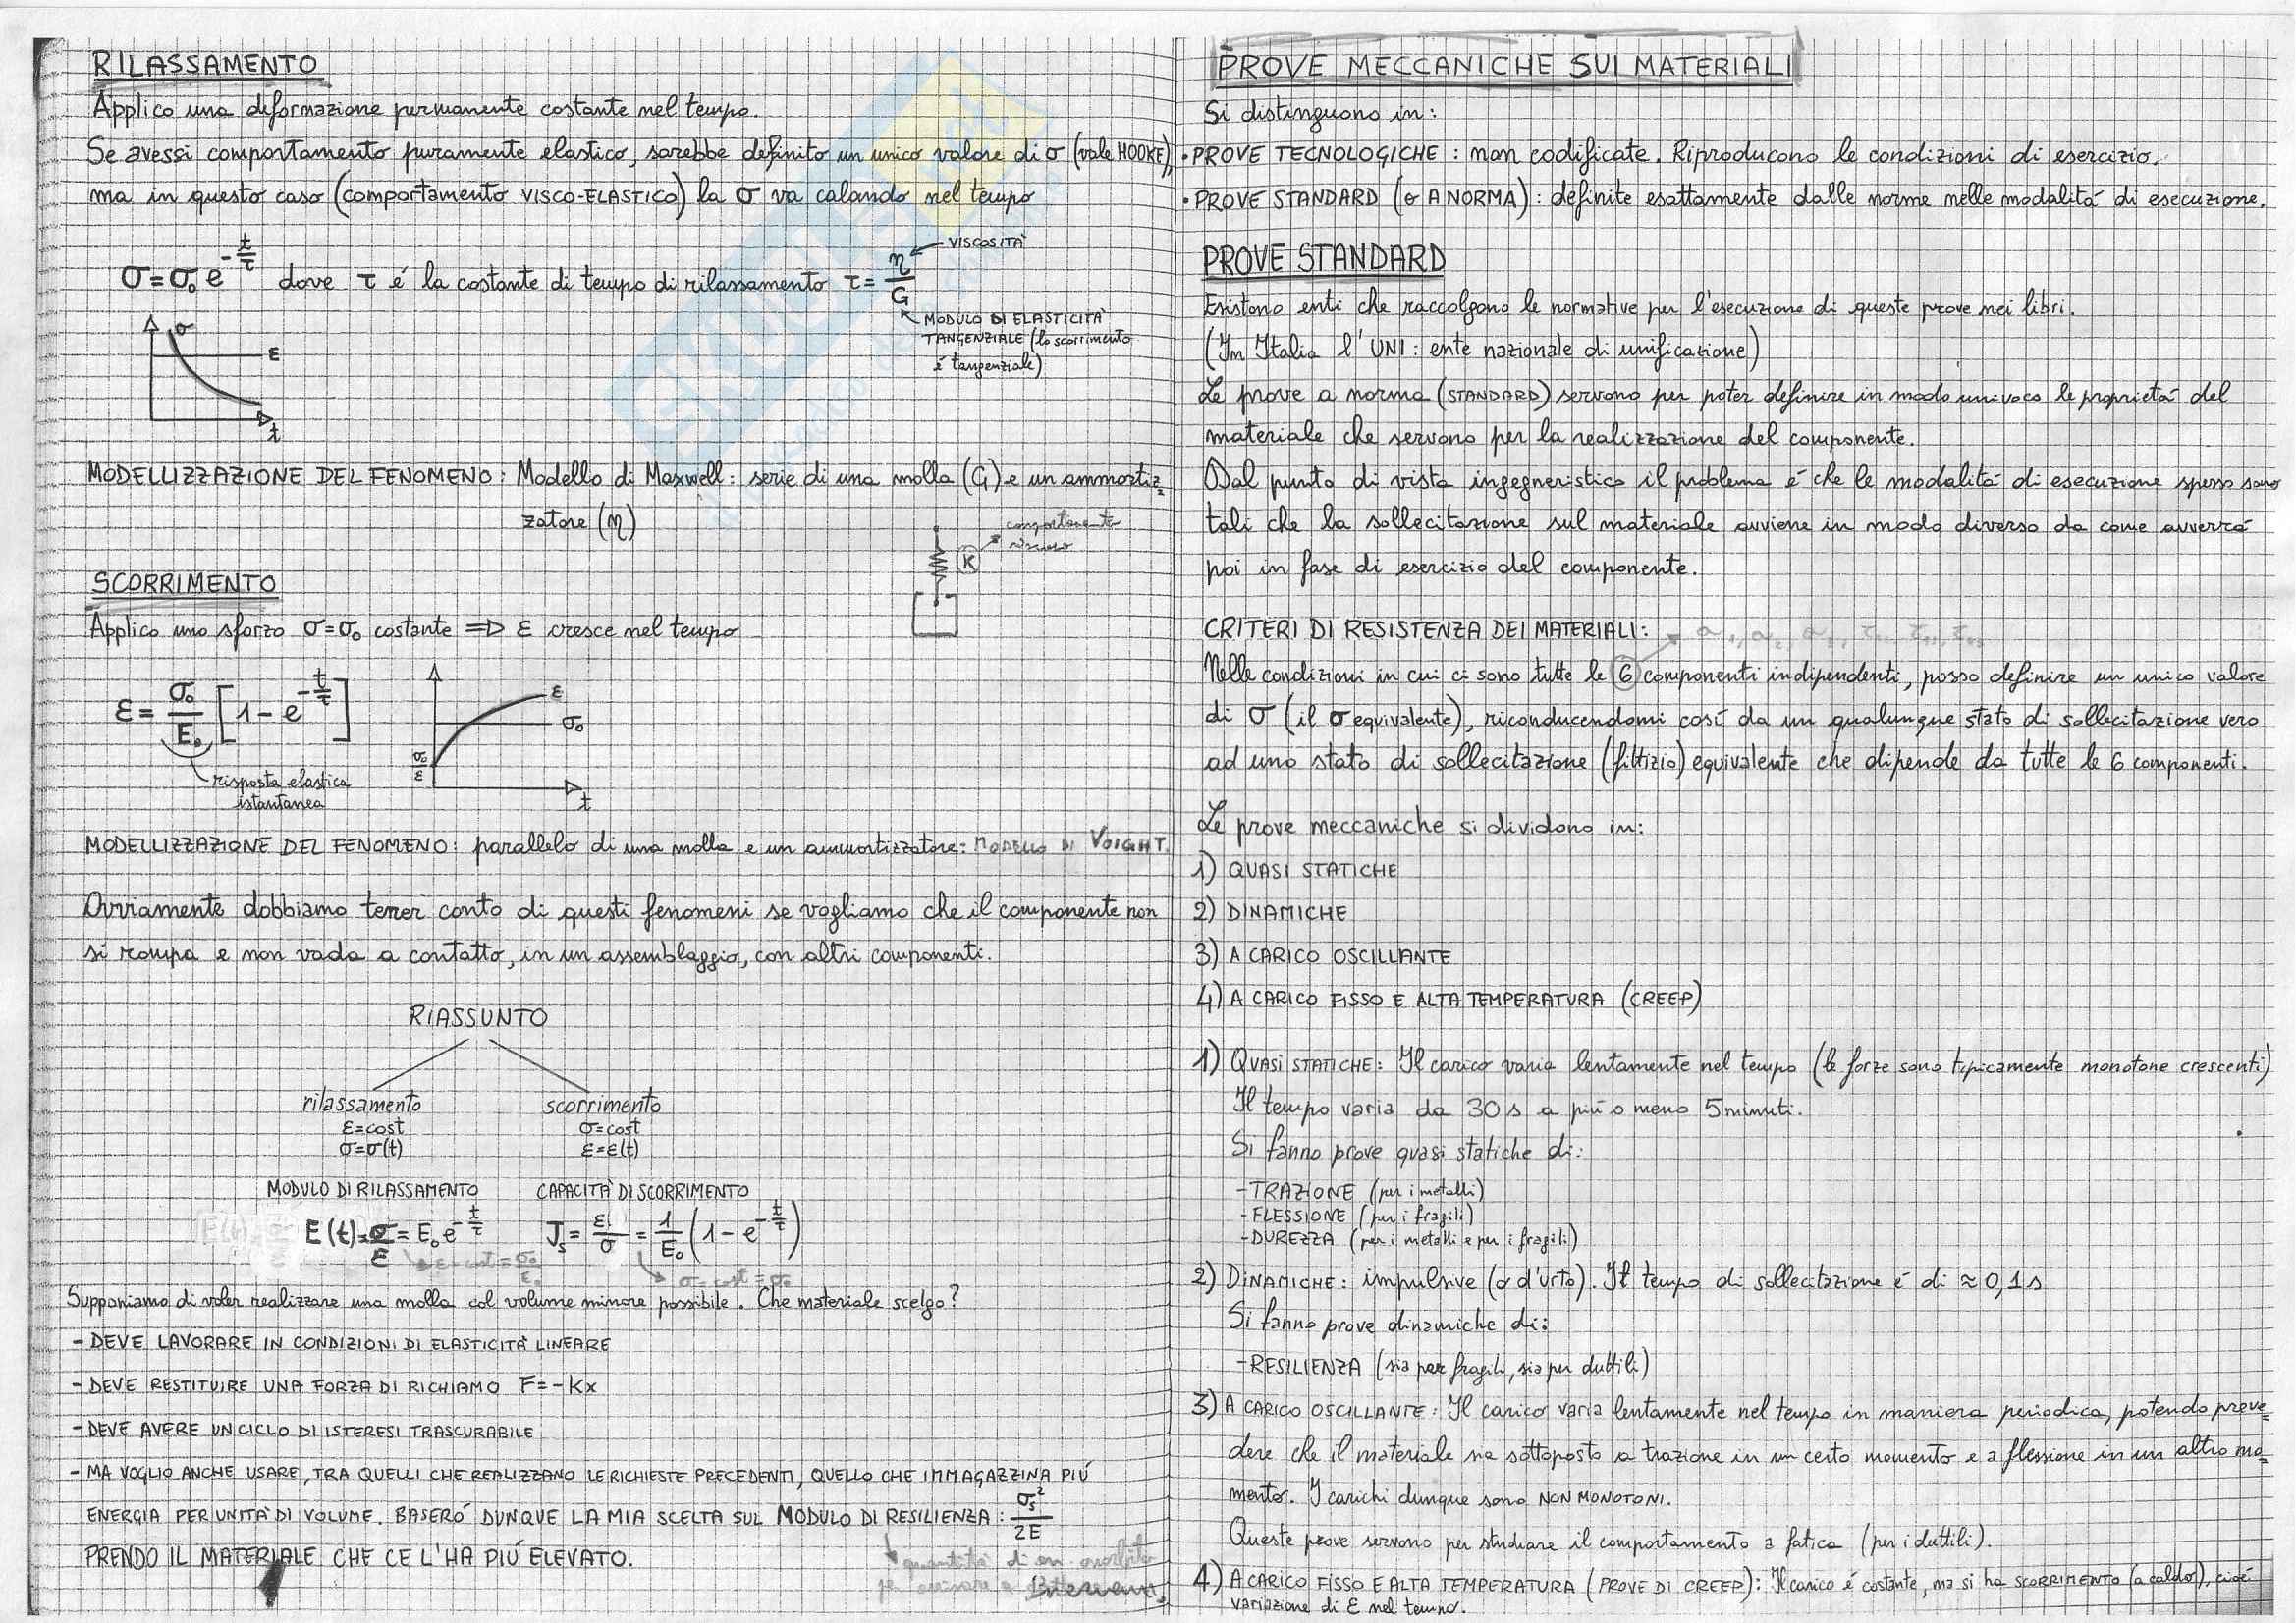 RILASSAMENTO
Applico una deformazione permanente costante nel tempo.
Se avessi comportamento puramente elastico, sarebbe definito un unico valore di σ (vale HOOKE),
ma in questo caso (comportamento VISCO-ELASTICO) la σ va calando nel tempo
σ = σ₀ e^(-t/τ) dove τ é la costante di tempo di rilassamento τ = η/G
VISCOSITÀ
MODULO DI ELASTICITÀ
TANGENZIALE (lo scorrimento
é tangenziale)
σ
ε
t
MODELLIZZAZIONE DEL FENOMENO: Modello di Maxwell: serie di una molla (G) e un ammortiz=
zatore (η)
K
SCORRIMENTO
Applico uno sforzo σ=σ₀ costante => ε cresce nel tempo
ε = σ₀/E₀ [1 - e^(-t/τ)]
risposta elastica
istantanea
ε
σ₀
σ₀/ε
t
MODELLIZZAZIONE DEL FENOMENO: parallelo di una molla e un ammortizzatore: MODELLO DI VOIGHT.
Ovviamente dobbiamo tener conto di questi fenomeni se vogliamo che il componente non
si rompa e non vada a contatto, in un assemblaggio, con altri componenti.
RIASSUNTO
rilassamento
ε=cost
σ=σ(t)
scorrimento
σ=cost
ε=ε(t)
MODULO DI RILASSAMENTO
E(t) = σ/ε = E₀ e^(-t/τ)
CAPACITÀ DI SCORRIMENTO
Js = ε/σ = 1/E₀ (1 - e^(-t/τ))
ε=cost = σ₀/ε₀
σ=cost=σ₀
Supponiamo di voler realizzare una molla col volume minore possibile. Che materiale scelgo?
- DEVE LAVORARE IN CONDIZIONI DI ELASTICITÀ LINEARE
- DEVE RESTITUIRE UNA FORZA DI RICHIAMO F=-Kx
- DEVE AVERE UN CICLO DI ISTERESI TRASCURABILE
- MA VOGLIO ANCHE USARE, TRA QUELLI CHE REALIZZANO LE RICHIESTE PRECEDENTI, QUELLO CHE IMMAGAZZINA PIÚ
ENERGIA PER UNITÀ DI VOLUME. BASERÓ DUNQUE LA MIA SCELTA SUL MODULO DI RESILIENZA: σs²/2E
PRENDO IL MATERIALE CHE CE L'HA PIÚ ELEVATO.
quantità di en.
PROVE MECCANICHE SUI MATERIALI
Si distinguono in:
• PROVE TECNOLOGICHE: non codificate. Riproducono le condizioni di esercizio.
• PROVE STANDARD (o A NORMA): definite esattamente dalle norme nelle modalitá di esecuzione.
PROVE STANDARD
Esistono enti che raccolgono le normative per l'esecuzione di queste prove nei libri.
(In Italia l'UNI: ente nazionale di unificazione)
Le prove a norma (STANDARD) servono per poter definire in modo univoco le proprietá del
materiale che servono per la realizzazione del componente.
Dal punto di vista ingegneristico il problema é che le modalitá di esecuzione spesso sono
tali che la sollecitazione sul materiale avviene in modo diverso da come avverrá
poi in fase di esercizio del componente.
CRITERI DI RESISTENZA DEI MATERIALI:
Nelle condizioni in cui ci sono tutte le 6 componenti indipendenti, posso definire un unico valore
di σ (il σ equivalente), riconducendomi cosí da un qualunque stato di sollecitazione vero
ad uno stato di sollecitazione (fittizio) equivalente che dipende da tutte le 6 componenti.
Le prove meccaniche si dividono in:
1) QUASI STATICHE
2) DINAMICHE
3) A CARICO OSCILLANTE
4) A CARICO FISSO E ALTA TEMPERATURA (CREEP)
1) QUASI STATICHE: Il carico varia lentamente nel tempo (le forze sono tipicamente monotone crescenti)
Il tempo varia da 30 s a piú o meno 5 minuti.
Si fanno prove quasi statiche di:
- TRAZIONE (per i metalli)
- FLESSIONE (per i fragili)
- DUREZZA (per i metalli e per i fragili)
2) DINAMICHE: impulsive (o d'urto). Il tempo di sollecitazione é di ≈ 0,1 s
Si fanno prove dinamiche di:
- RESILIENZA (sia per fragili, sia per duttili)
3) A CARICO OSCILLANTE: Il carico varia lentamente nel tempo in maniera periodica, potendo preve=
dere che il materiale sia sottoposto a trazione in un certo momento e a flessione in un altro mo=
mento. I carichi dunque sono NON MONOTONI.
Queste prove servono per studiare il comportamento a fatica (per i duttili).
4) A CARICO FISSO E ALTA TEMPERATURA (PROVE DI CREEP): Il carico é costante, ma si ha SCORRIMENTO (a caldo), cioé
variazione di ε nel tempo.